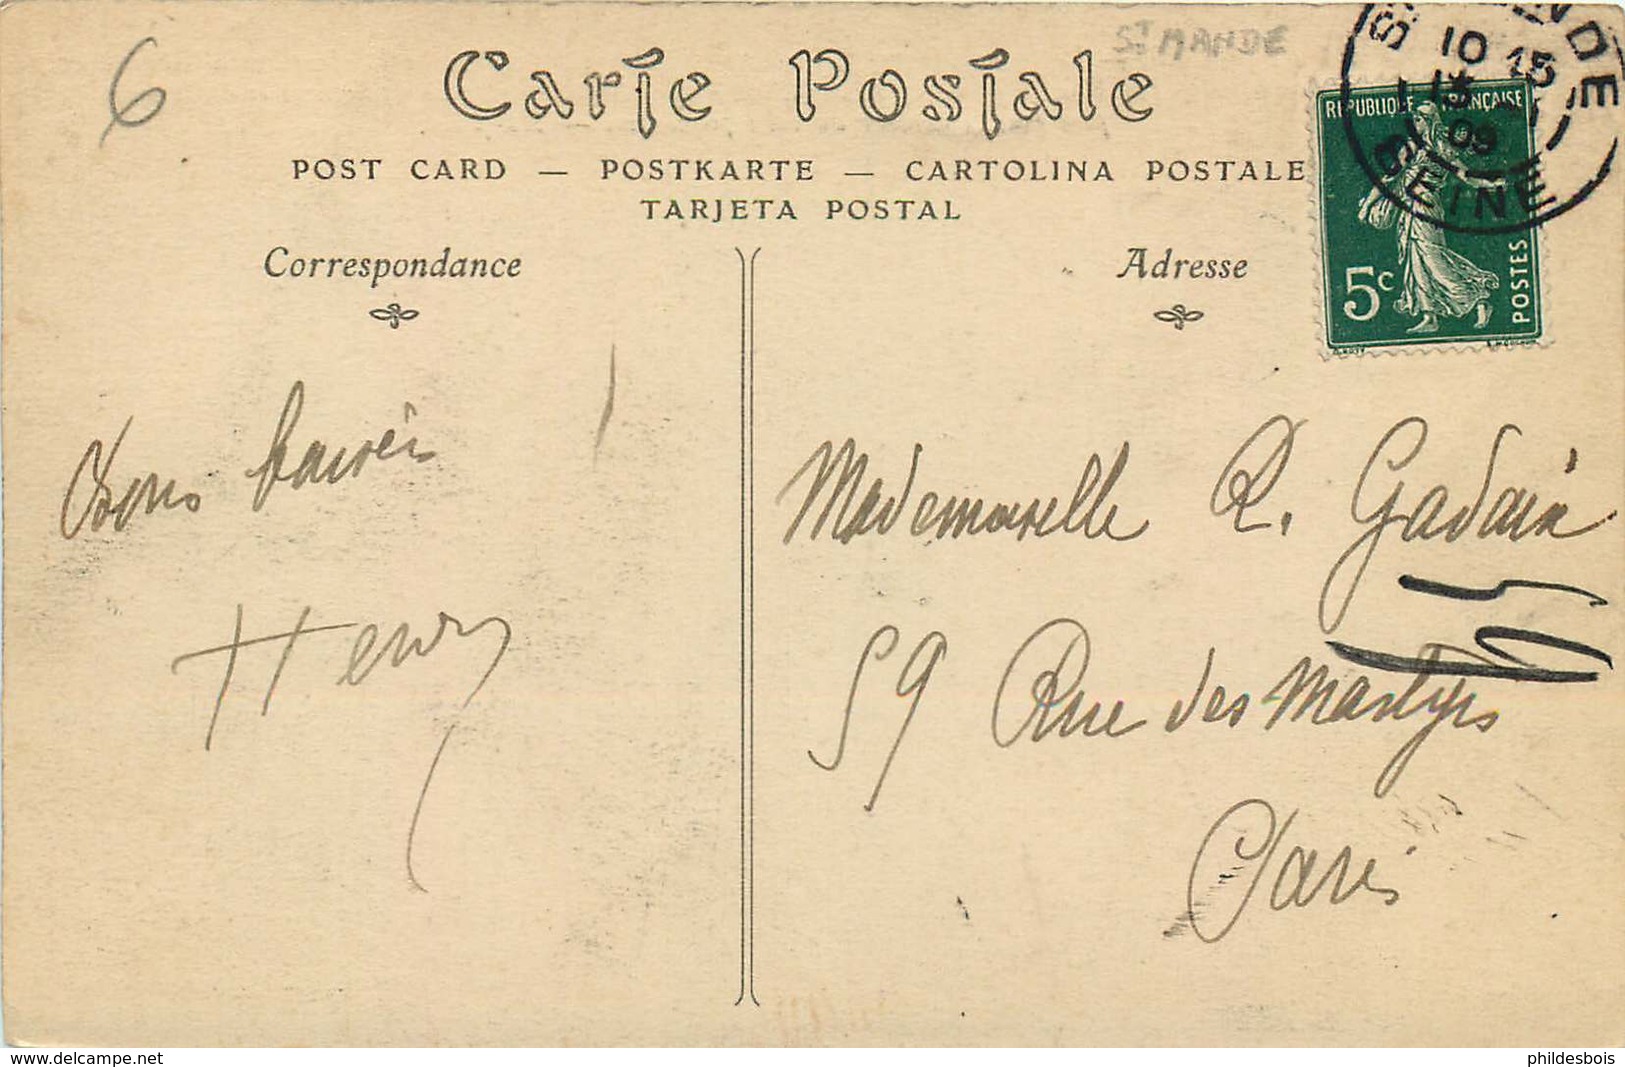 6
ST MANDE
Carte Postale
POST CARD — POSTKARTE — CARTOLINA POSTALE
TARJETA POSTAL
Correspondance
Adresse
REPUBLIQUE FRANÇAISE
5c
POSTES
10 15
09
SEINE
Bons baisers
Henry
Mademoiselle R. Gadain
59 Rue des Martyrs
Paris
www.delcampe.net
phildesbois